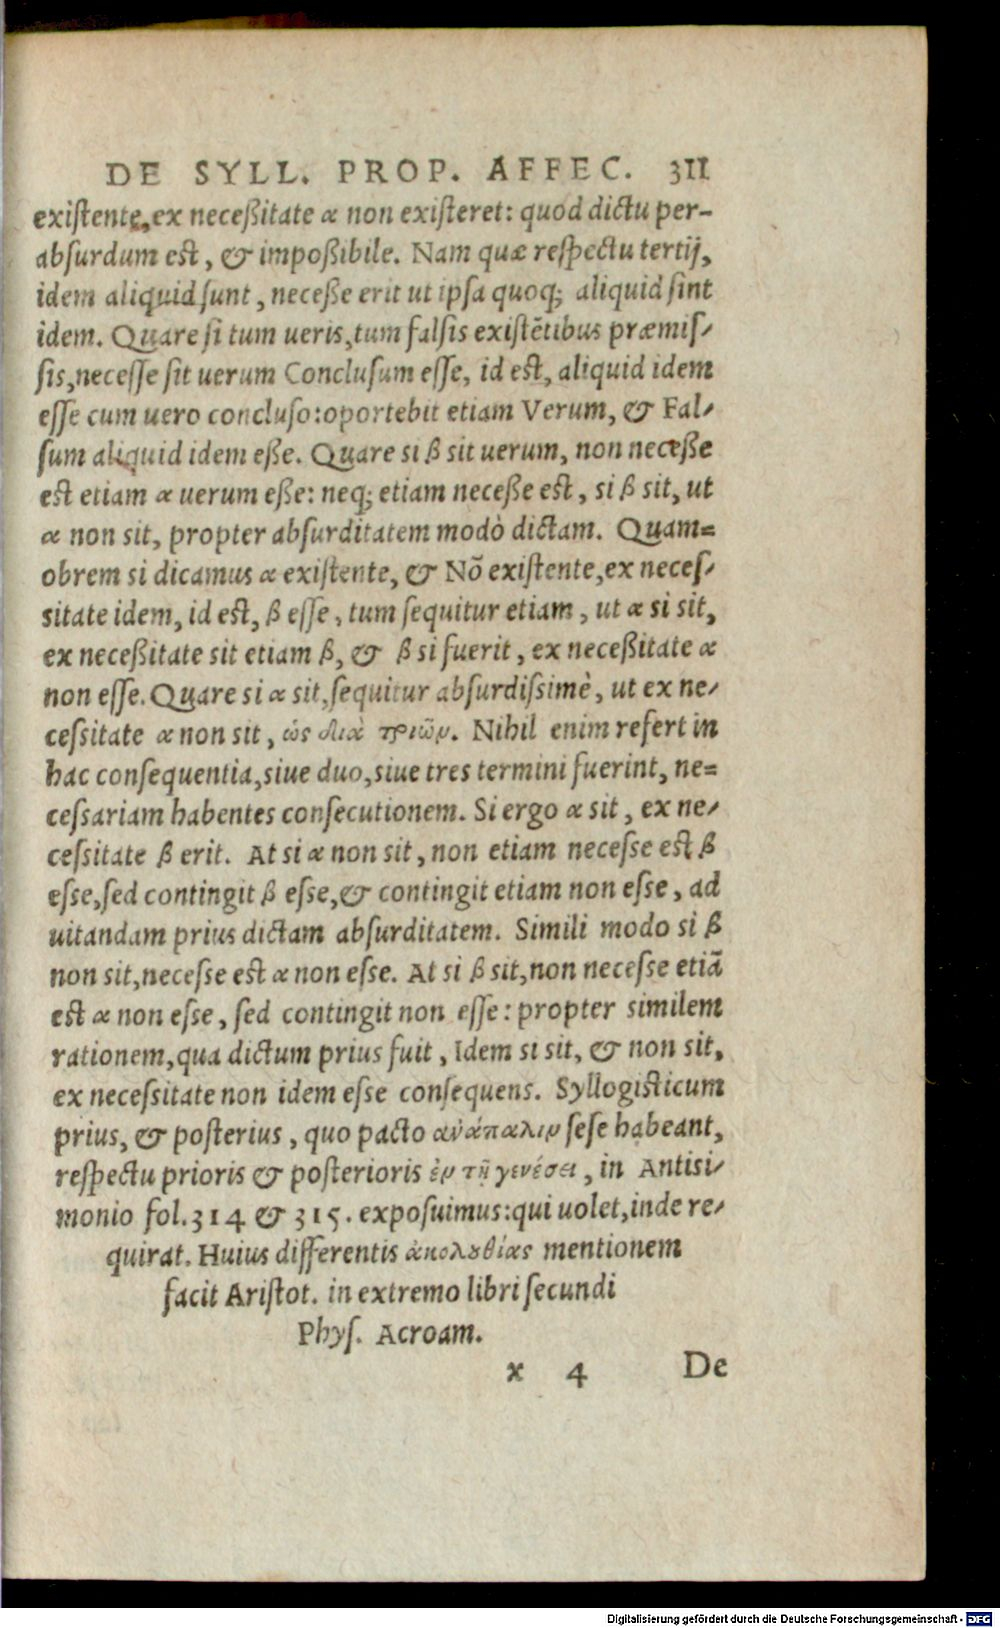 DE SYLL. PROP. AFFEC. 311
existente, ex neceßitate α non existeret: quod dictu per-
absurdum est, & impoßibile. Nam quæ respectu tertij,
idem aliquid sunt, neceße erit ut ipsa quoq; aliquid sint
idem. Quare si tum ueris, tum falsis existētibus præmis-
sis, necesse sit uerum Conclusum esse, id est, aliquid idem
esse cum uero concluso: oportebit etiam Verum, & Fal-
sum aliquid idem eße. Quare si β sit uerum, non neceße
est etiam α uerum eße: neq; etiam neceße est, si β sit, ut
α non sit, propter absurditatem modò dictam. Quam=
obrem si dicamus α existente, & Nō existente, ex neces-
sitate idem, id est, β esse, tum sequitur etiam, ut α si sit,
ex neceßitate sit etiam β, & β si fuerit, ex neceßitate α
non esse. Quare si α sit, sequitur absurdissimè, ut ex ne-
cessitate α non sit, ὡς διὰ τριῶν. Nihil enim refert in
hac consequentia, siue duo, siue tres termini fuerint, ne=
cessariam habentes consecutionem. Si ergo α sit, ex ne-
cessitate β erit. At si α non sit, non etiam necesse est β
esse, sed contingit β esse, & contingit etiam non esse, ad
uitandam prius dictam absurditatem. Simili modo si β
non sit, necesse est α non esse. At si β sit, non necesse etiā
est α non esse, sed contingit non esse: propter similem
rationem, qua dictum prius fuit, Idem si sit, & non sit,
ex necessitate non idem esse consequens. Syllogisticum
prius, & posterius, quo pacto ανάπαλιν sese habeant,
respectu prioris & posterioris ἐν τῇ γενέσει, in Antisi-
monio fol. 314 & 315. exposuimus: qui uolet, inde re-
quirat. Huius differentis ἀκολουθίας mentionem
facit Aristot. in extremo libri secundi
Phys. Acroam.
x 4 De
Digitalisierung gefördert durch die Deutsche Forschungsgemeinschaft - DFG